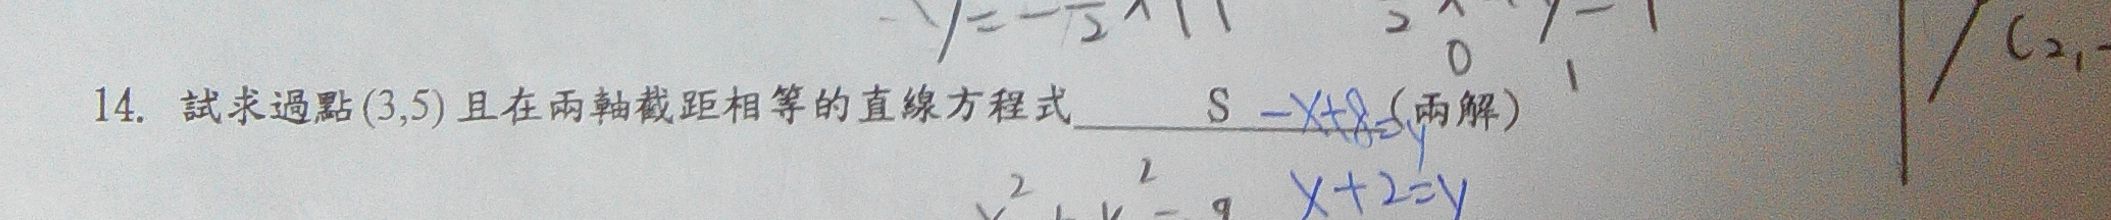 y=-1/2x+1
0
1
(2,-
14. 試求過點(3,5)且在兩軸截距相等的直線方程式 S -x+8=y (兩解)
x+2=y